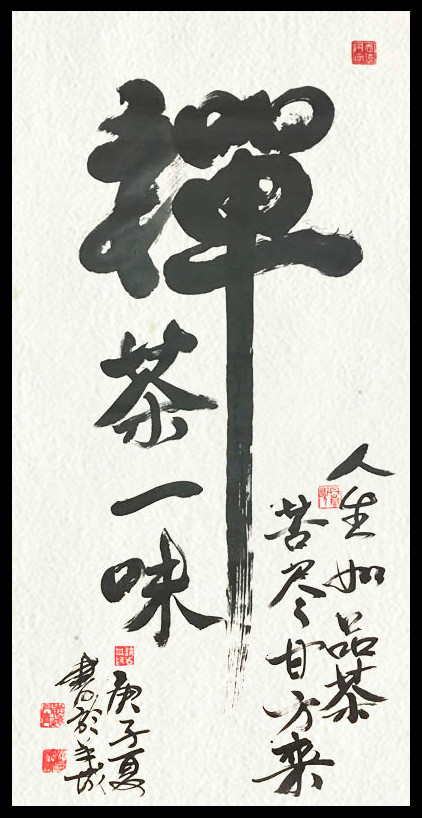 禪茶一味
人生如品茶
苦尽甘方來
庚子夏
書於羊城